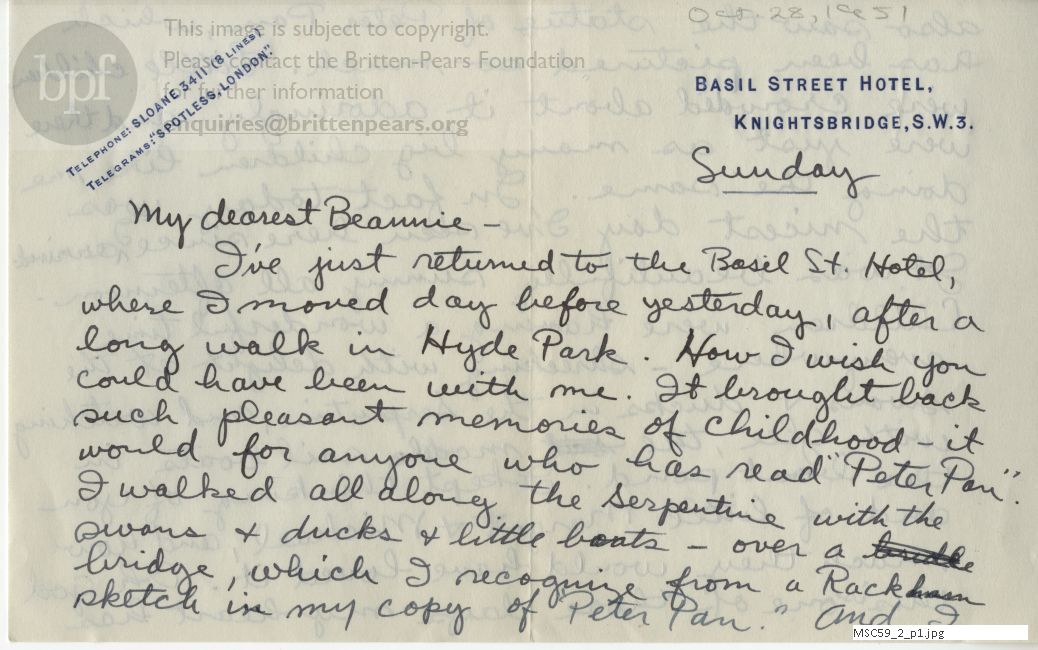 Oct. 28, 1951
This image is subject to copyright.
Please contact the Britten-Pears Foundation
for further information
enquiries@brittenpears.org
bpf
TELEPHONE: SLOANE 3411 (8 LINES)
TELEGRAMS: "SPOTLESS, LONDON."
BASIL STREET HOTEL,
KNIGHTSBRIDGE, S.W.3.
Sunday
My dearest Beannie –
I've just returned to the Basil St. Hotel,
where I moved day before yesterday, after a
long walk in Hyde Park. How I wish you
could have been with me. It brought back
such pleasant memories of childhood – it
would for anyone who has read "Peter Pan".
I walked all along the Serpentine with the
swans & ducks & little boats – over a
bridge, which I recognize from a Rackham
sketch in my copy of "Peter Pan." And I
MSC59_2_p1.jpg